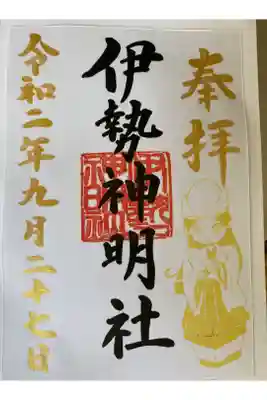 奉拝
伊勢神明社
令和二年九月二十七日